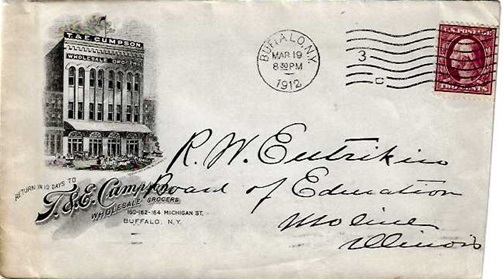 T. & E. CUMPSON
WHOLESALE GROCERS
RETURN IN 10 DAYS TO
T. & E. Cumpson
WHOLESALE GROCERS
160-162-164 MICHIGAN ST.
BUFFALO, N.Y.
BUFFALO, N.Y.
MAR 19
8 30 PM
1912
3
C
TWO CENTS
R. W. Eutrikin
Board of Education
Moline
Illinois